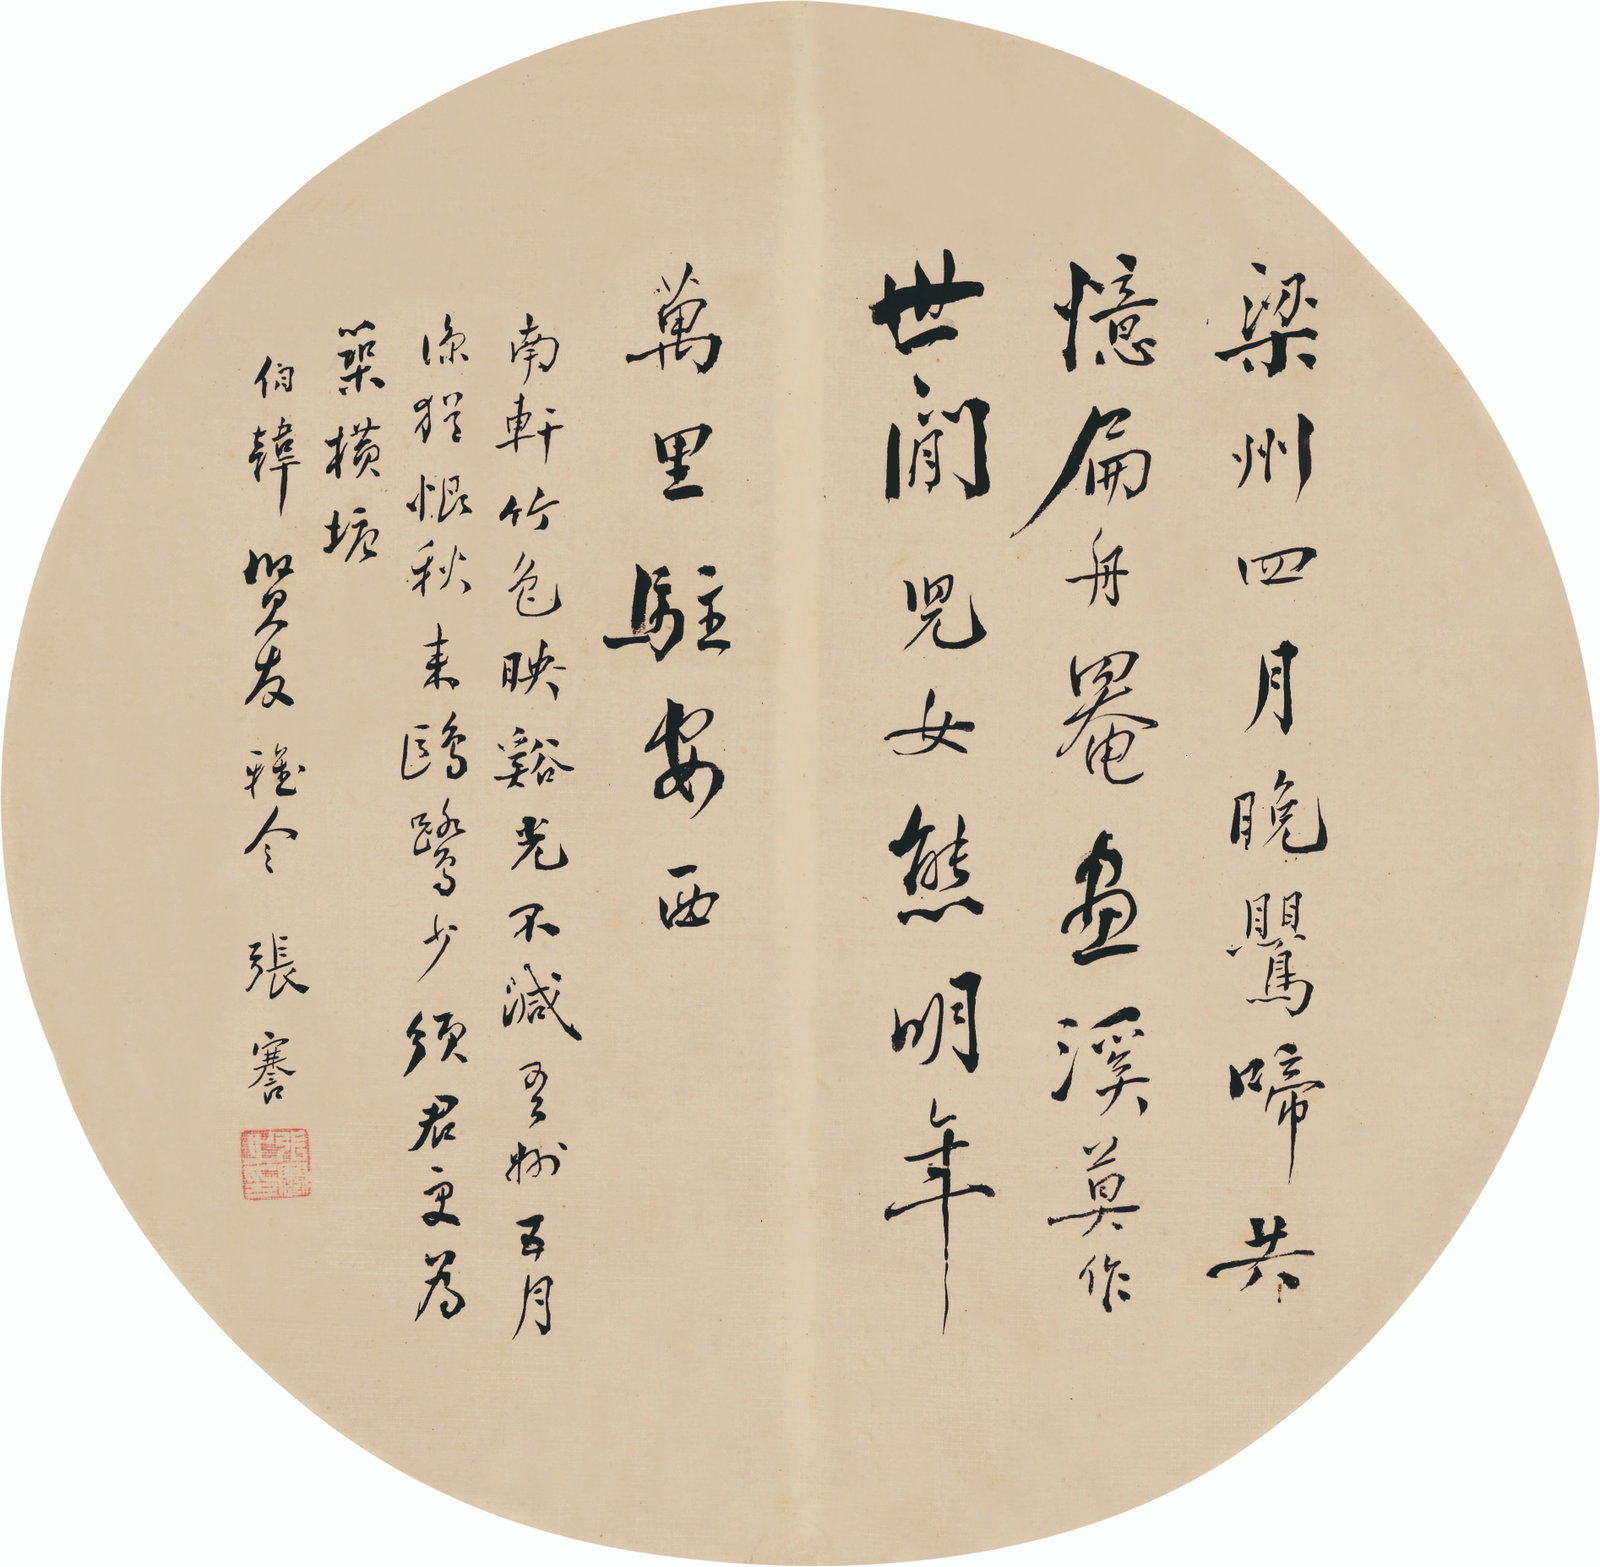 梁州四月晚鶯啼共
憶扁舟罨畫溪莫作
世閒兒女態明年
萬里駐安西
南軒竹色映谿光不減吾州五月
涼猶恨秋來鷗鷺少須君更為
築橫塘
伯韓賢友雅令 張謇
張謇之印